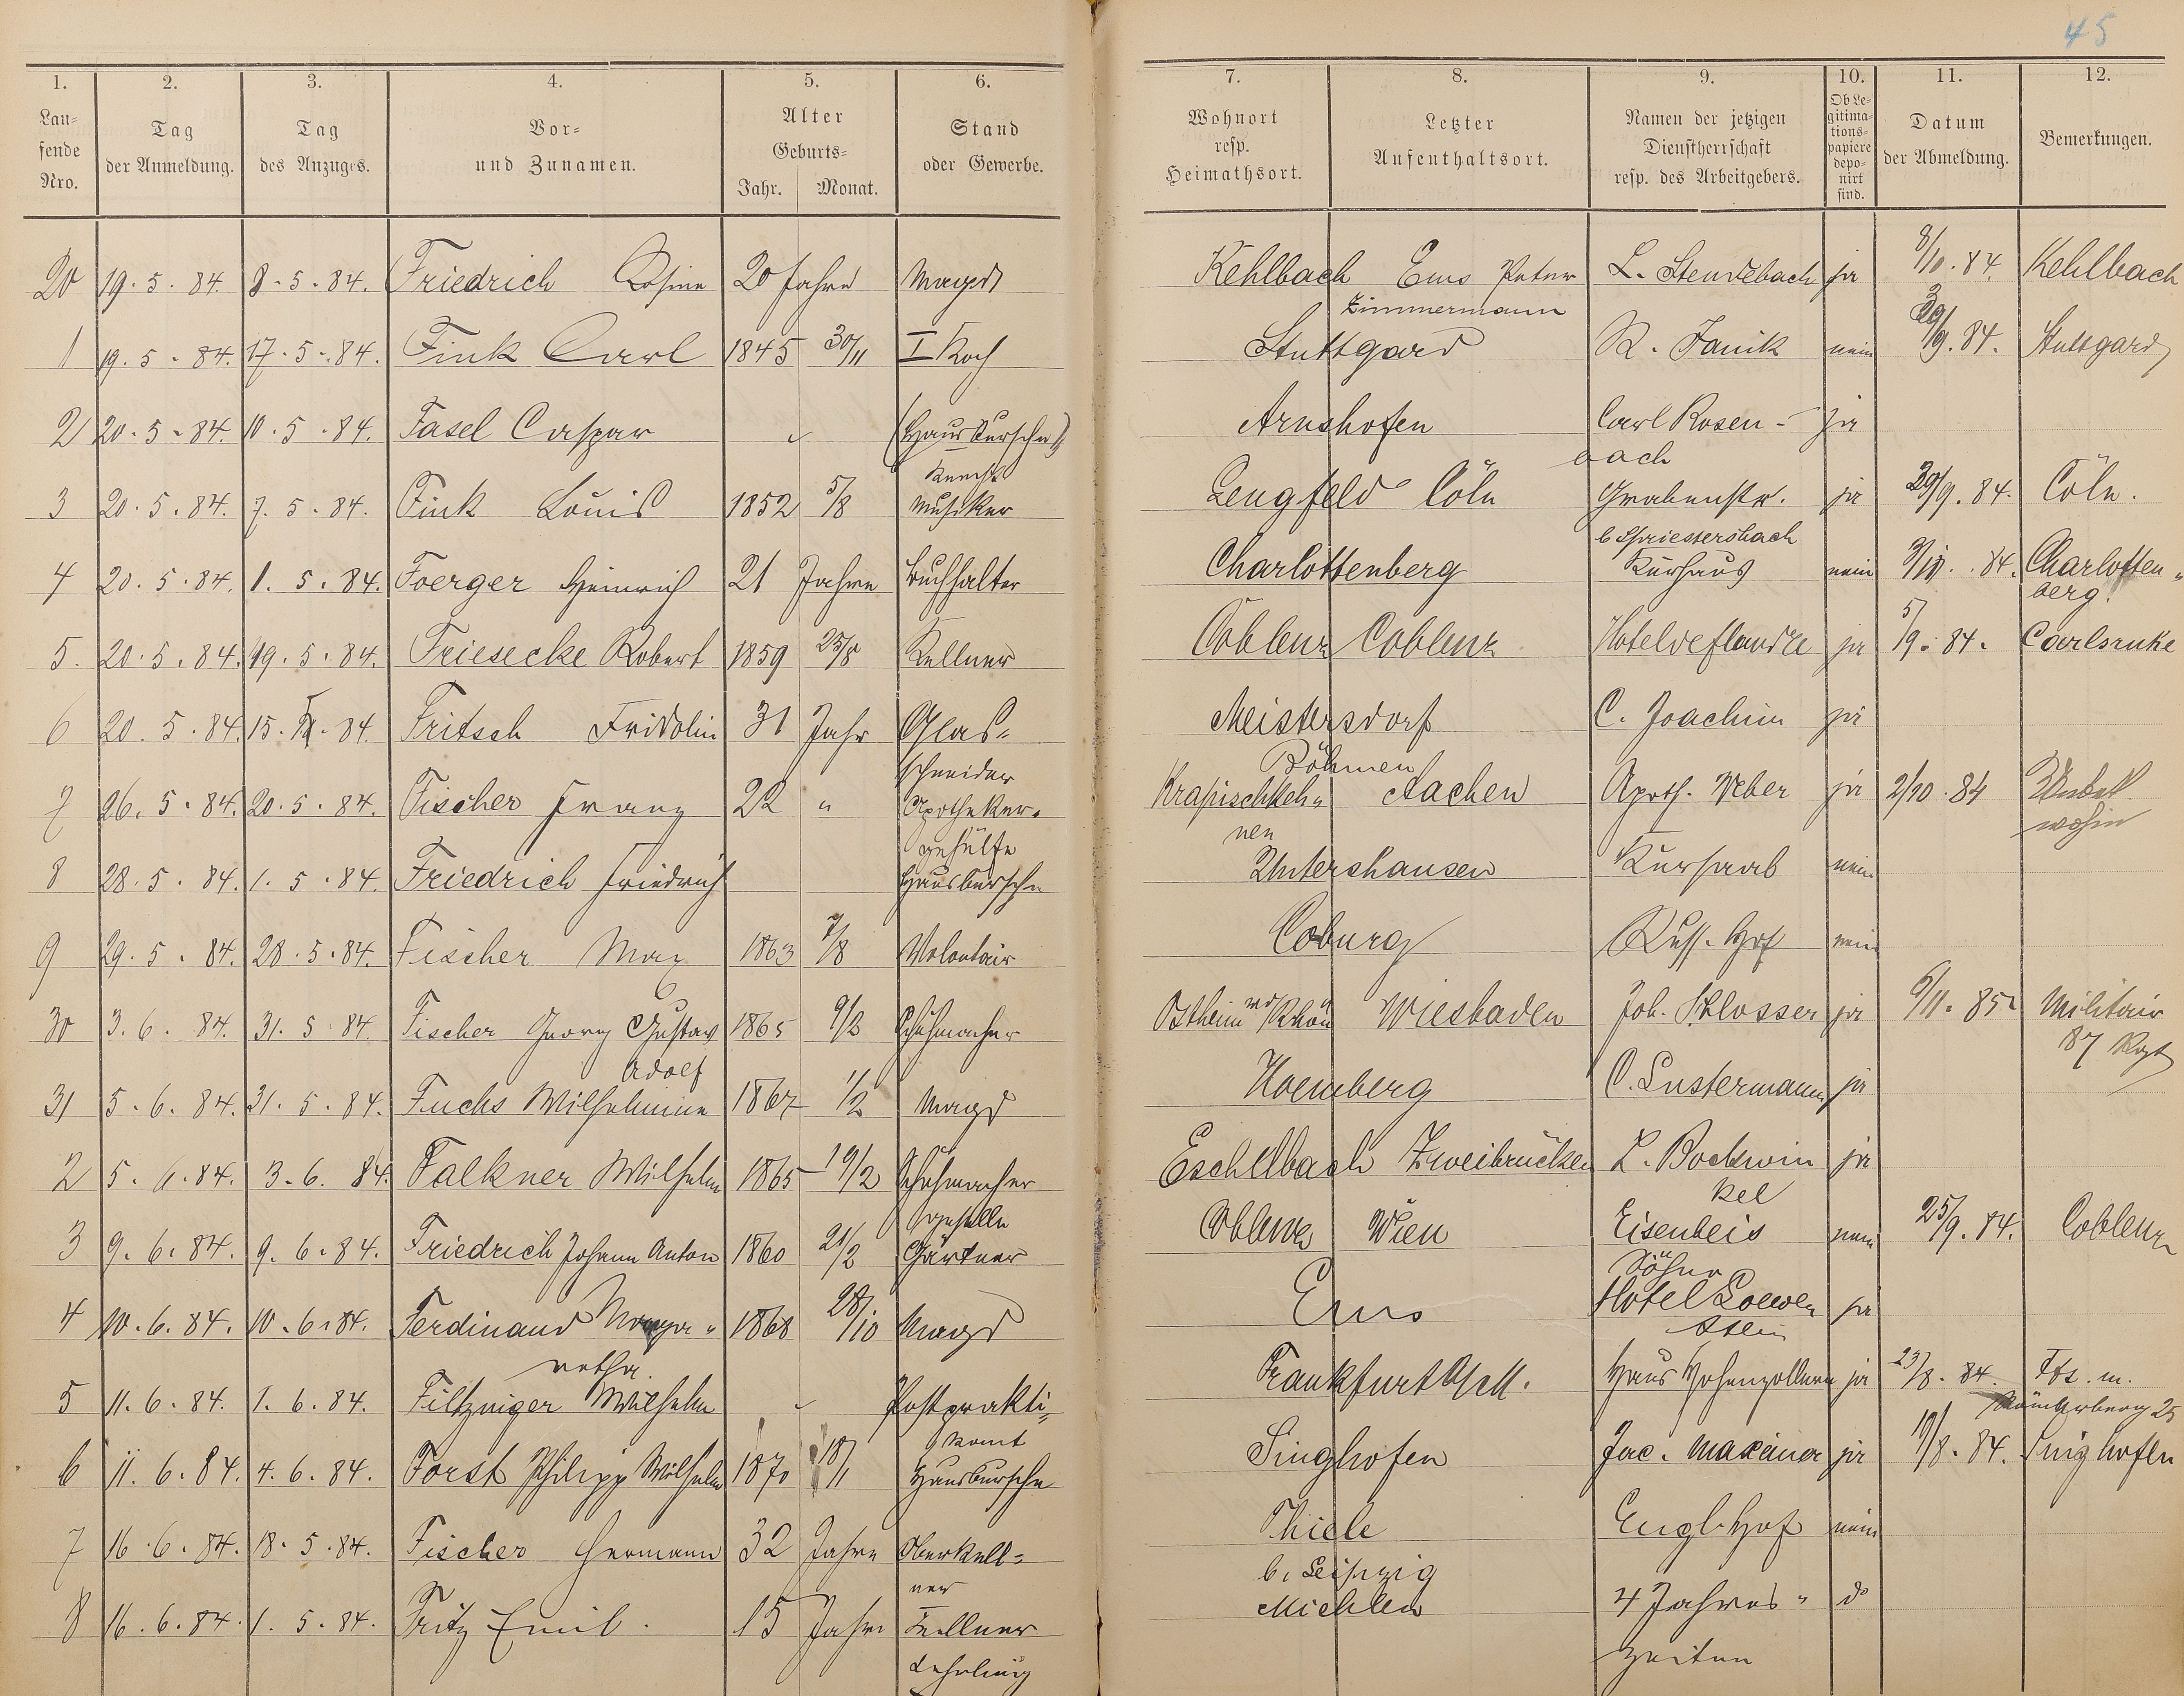 45
1. 2. 3. 4. 5. 6. 7. 8. 9. 10. 11. 12.
Lau=
fende
Nro.
Tag
der Anmeldung.
Tag
des Anzuges.
Vor=
und Zunamen.
Alter
Geburts=
Jahr. Monat.
Stand
oder Gewerbe.
Wohnort
resp.
Heimathsort.
Letzter
Aufenthaltsort.
Namen der jetzigen
Dienstherrschaft
resp. des Arbeitgebers.
Ob Le=
gitima=
tions=
papiere
depo=
nirt
sind.
Datum
der Abmeldung.
Bemerkungen.
20 19. 5. 84. 8. 5. 84. Friedrich Rosine 20 Jahre Magd Kehlbach Ems Peter L. Stendebach ja 8/10. 84. Kehlbach
Zimmermann
1 19. 5. 84. 17. 5. 84. Fink Carl 1845 30/11 I Koch Stuttgard R. Janik nein /9. 84. Stuttgard
2 20. 5. 84. 10. 5. 84. Fasel Caspar (Hausbursche) Arnshofen Carl Rosen- ja
Knecht bach
3 20. 5. 84. 7. 5. 84. Fink Louis 1852 5/8 Musiker Lengfeld Cöln Grabenstr. ja 29/9. 84. Cöln.
b Spriestersbach
4 20. 5. 84. 1. 5. 84. Foerger Heinrich 21 Jahre Buchhalter Charlottenberg Kurhaus nein /10. 84. Charlotten„
berg.
5. 20. 5. 84. 19. 5. 84. Friesecke Robert 1859 25/8 Kellner Coblenz Coblenz Hoteldeflandre ja 5/9. 84. Carlsruhe
6 20. 5. 84. 15. 84. Fritsch Fridolin 31 Jahr Glas= Meistersdorf C. Joachim ja
schneider Böhmen
7 26. 5. 84. 20. 5. 84. Fischer Franz 22 " Apotheker= Krapischkeh„ Aachen Apoth. Weber ja 2/10. 84 Unbek.
gehülfe nen wohin
8 28. 5. 84. 1. 5. 84. Friedrich Friedrich Hausbursche Untershausen Kursaal nein
9 29. 5. 84. 28. 5. 84. Fischer Max 1863 7/8 Volontair Coburg Russ. Hof nein
30 3. 6. 84. 31. 5 84. Fischer Georg Gustav 1865 9/2 Schuhmacher Ostheim v/d Rhön Wiesbaden Joh. Schlosser ja 6/11. 85. Militair
Adolf 87 Rgt
31 5. 6. 84. 31. 5. 84. Fuchs Wilhelmine 1867 1/2 Magd Hoemberg C. Lustermann ja
2 5. 6. 84. 3. 6. 84. Falkner Wilhelm 1865 19/2 Schuhmacher Eschelbach Zweibrücken L. Bockwin ja
geselle kel
3 9. 6. 84. 9. 6. 84. Friedrich Johann Anton 1860 21/2 Gärtner Coblenz Wien Eisenbeis nein 25/9. 84. Coblenz
Söhne
4 10. 6. 84. 10. 6. 84. Ferdinand Marga„ 1868 28/10 Magd Ems Hotel Loewen ja
retha. stein
5 11. 6. 84. 1. 6. 84. Filtzniger Wilhelm Postprakti= Frankfurt a/M. Haus Hohenzollern ja 23/8. 84. Ffs. m.
kant Römerberg 25
6 11. 6. 84. 4. 6. 84. Forst Philipp Wilhelm 1870 18/11 Hausbursche Singhofen Jac. Maxeiner ja 19/8. 84. Singhofen
7 16. 6. 84. 18. 5. 84. Fischer Hermann 32 Jahre Oberkell= Thiele Engl. Hof nein
ner b. Leipzig
8 16. 6. 84. 1. 5. 84. Fritz Emil. 15 Jahre Kellner Miehlen 4 Jahres„ do
Lehrling zeiten